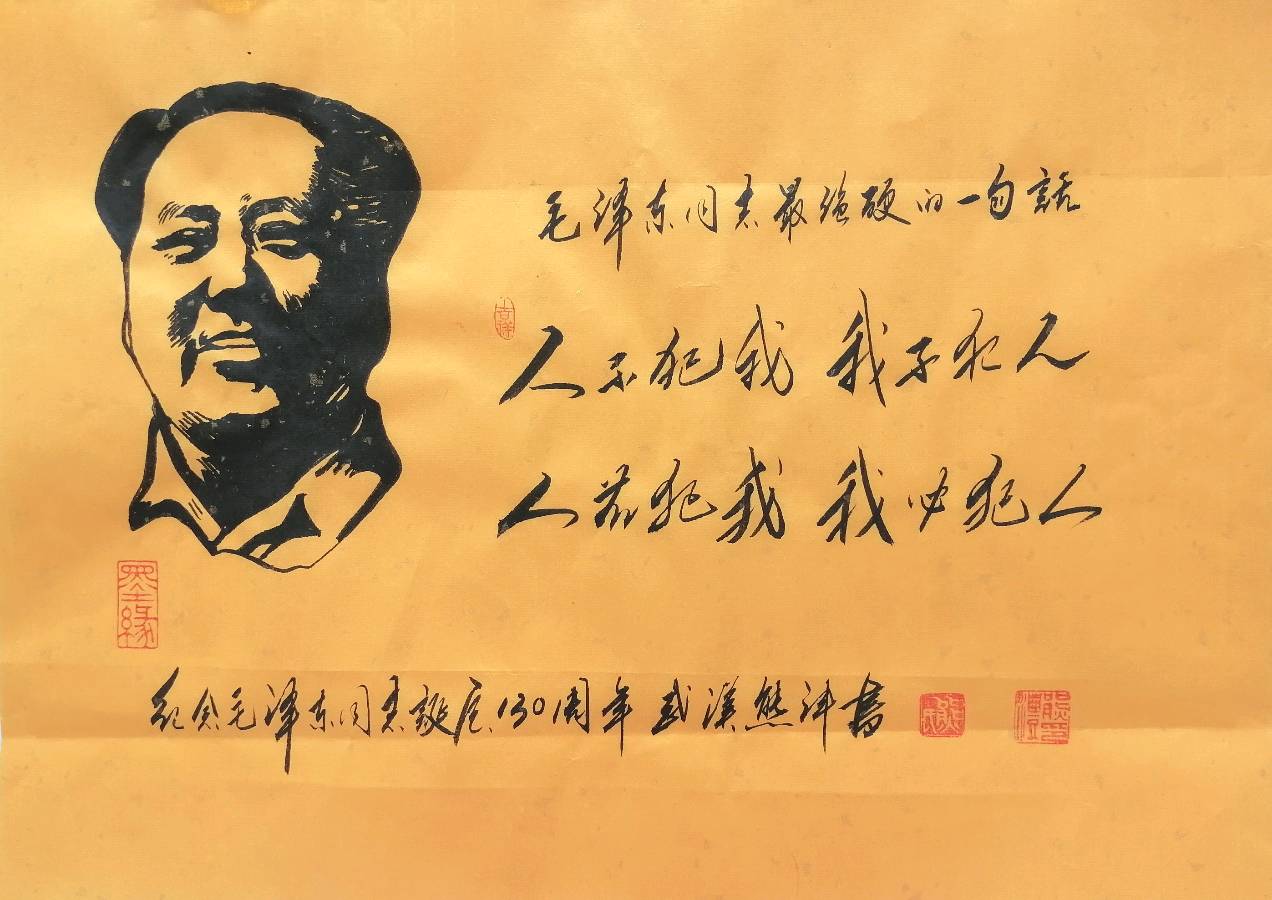 毛泽东同志最强硬的一句話
人不犯我 我不犯人
人若犯我 我必犯人
吉祥
墨緣
纪念毛泽东同志誕辰130周年 武漢熊 書